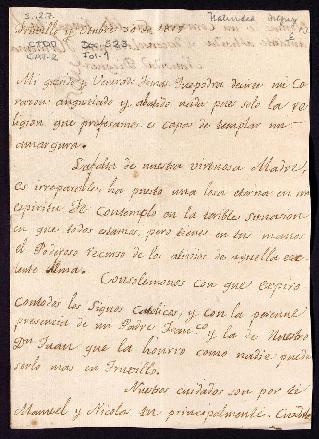 S. 127.
Natividad
CTDD
Doc. 523.
Fol. 1
Truxillo y Octubre 30 de 1817
Mi querido y Venerado Tomas: Yo podra decirte mi Co-
razon angustiado y abatido nada pues solo la re-
ligion que profesamos es capas de templar mi
amargura.
La falta de nuestra virtuosa Madre,
es irreparable; ha puesto una losa eterna en mi
espiritu. Te Contemplo en la terible situasion
en que todos estamos, pero tienes en tus manos
el Poderoso recurso de los alivios de aquella exe-
lente Alma.
Consolemonos con que expiro
con todos los Signos Catolicos, y con la perenne
presencia de un Padre Fran.co y la de Nuestro
Dn Juan que la honrro como nadie puede
serlo mas en Truxillo.
Nuestros cuidados son por ti
Manuel y Nicolas tu principalmente.